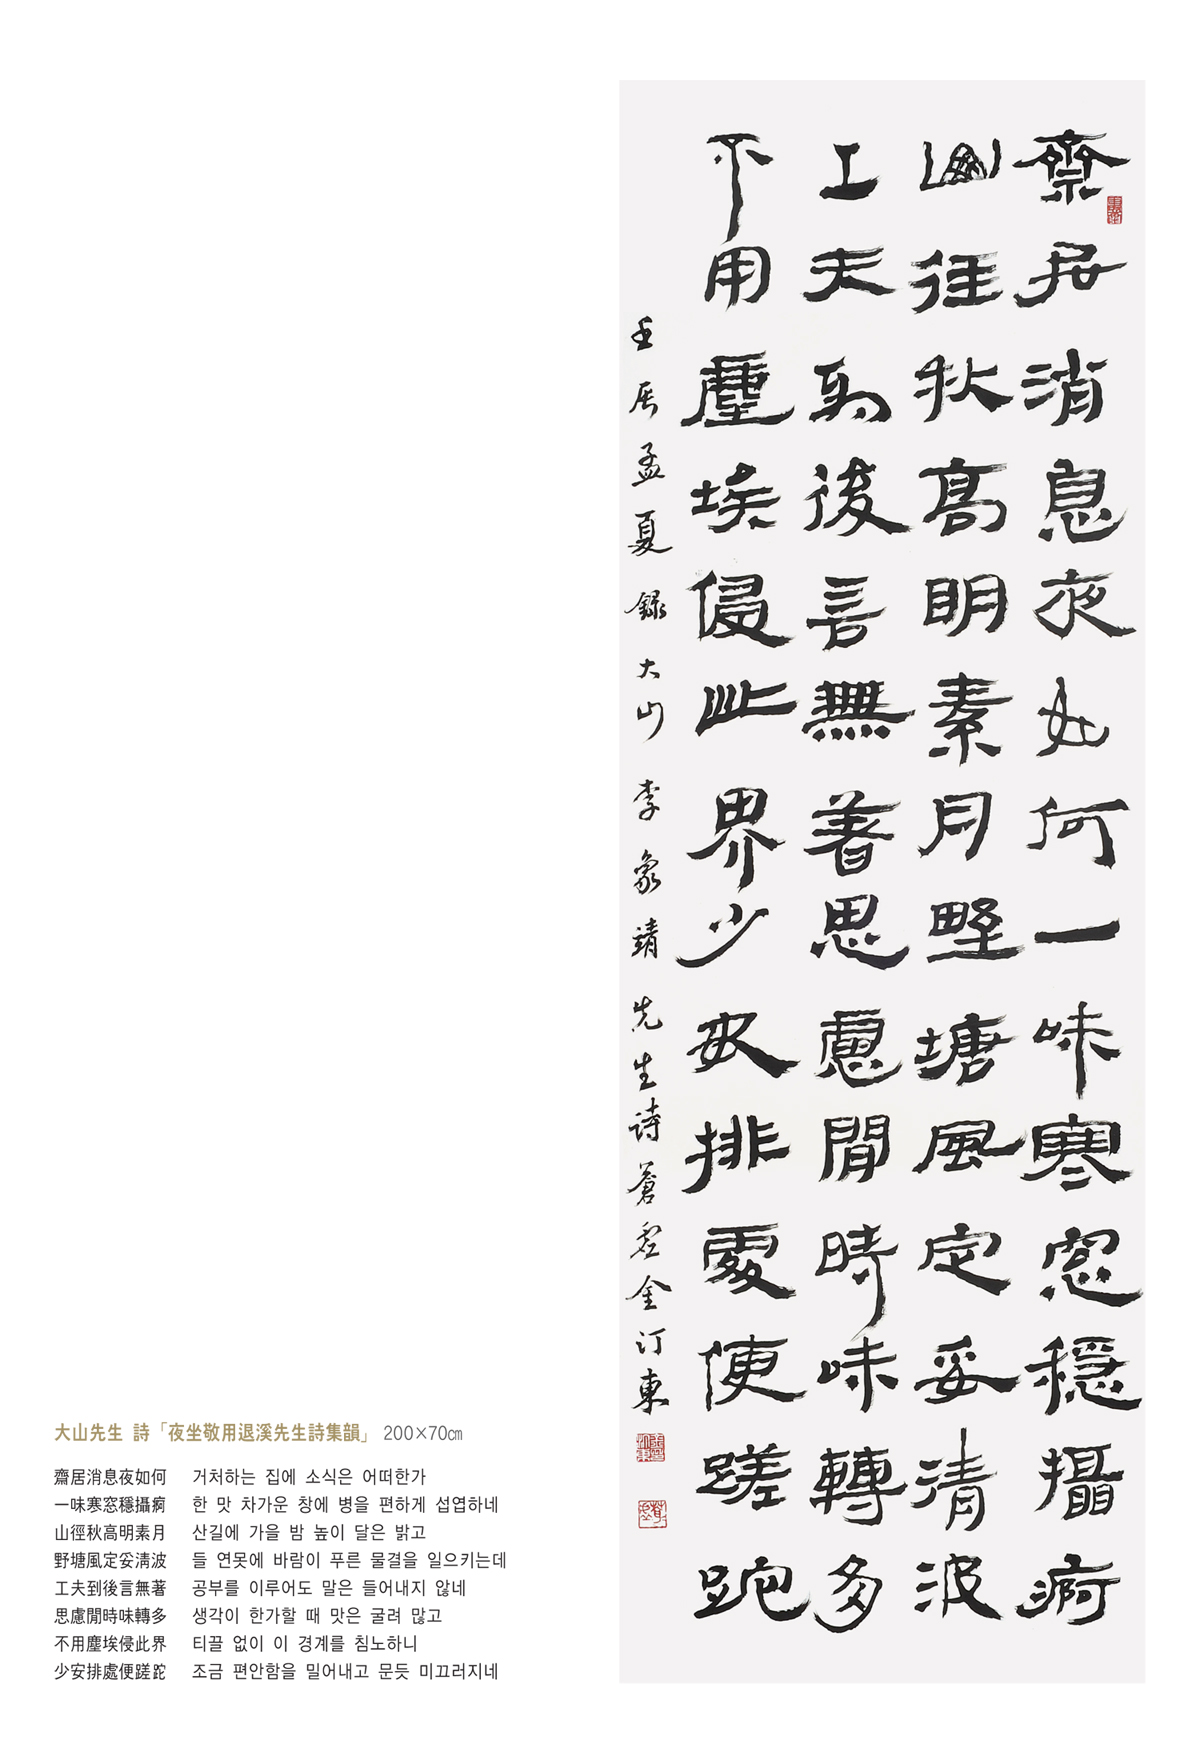 齋居消息夜如何一味寒窓穩攝痾
山徑秋高明素月野塘風定妥淸波
工夫到後言無著思慮閒時味轉多
不用塵埃侵此界少安排處便蹉跎
壬辰孟夏錄大山李象靖先生詩蒼君金汀東
大山先生 詩「夜坐敬用退溪先生詩集韻」 200×70㎝
齋居消息夜如何 거처하는 집에 소식은 어떠한가
一味寒窓穩攝痾 한 맛 차가운 창에 병을 편하게 섭엽하네
山徑秋高明素月 산길에 가을 밤 높이 달은 밝고
野塘風定妥淸波 들 연못에 바람이 푸른 물결을 일으키는데
工夫到後言無著 공부를 이루어도 말은 들어내지 않네
思慮閒時味轉多 생각이 한가할 때 맛은 굴려 많고
不用塵埃侵此界 티끌 없이 이 경계를 침노하니
少安排處便蹉跎 조금 편안함을 밀어내고 문듯 미끄러지네